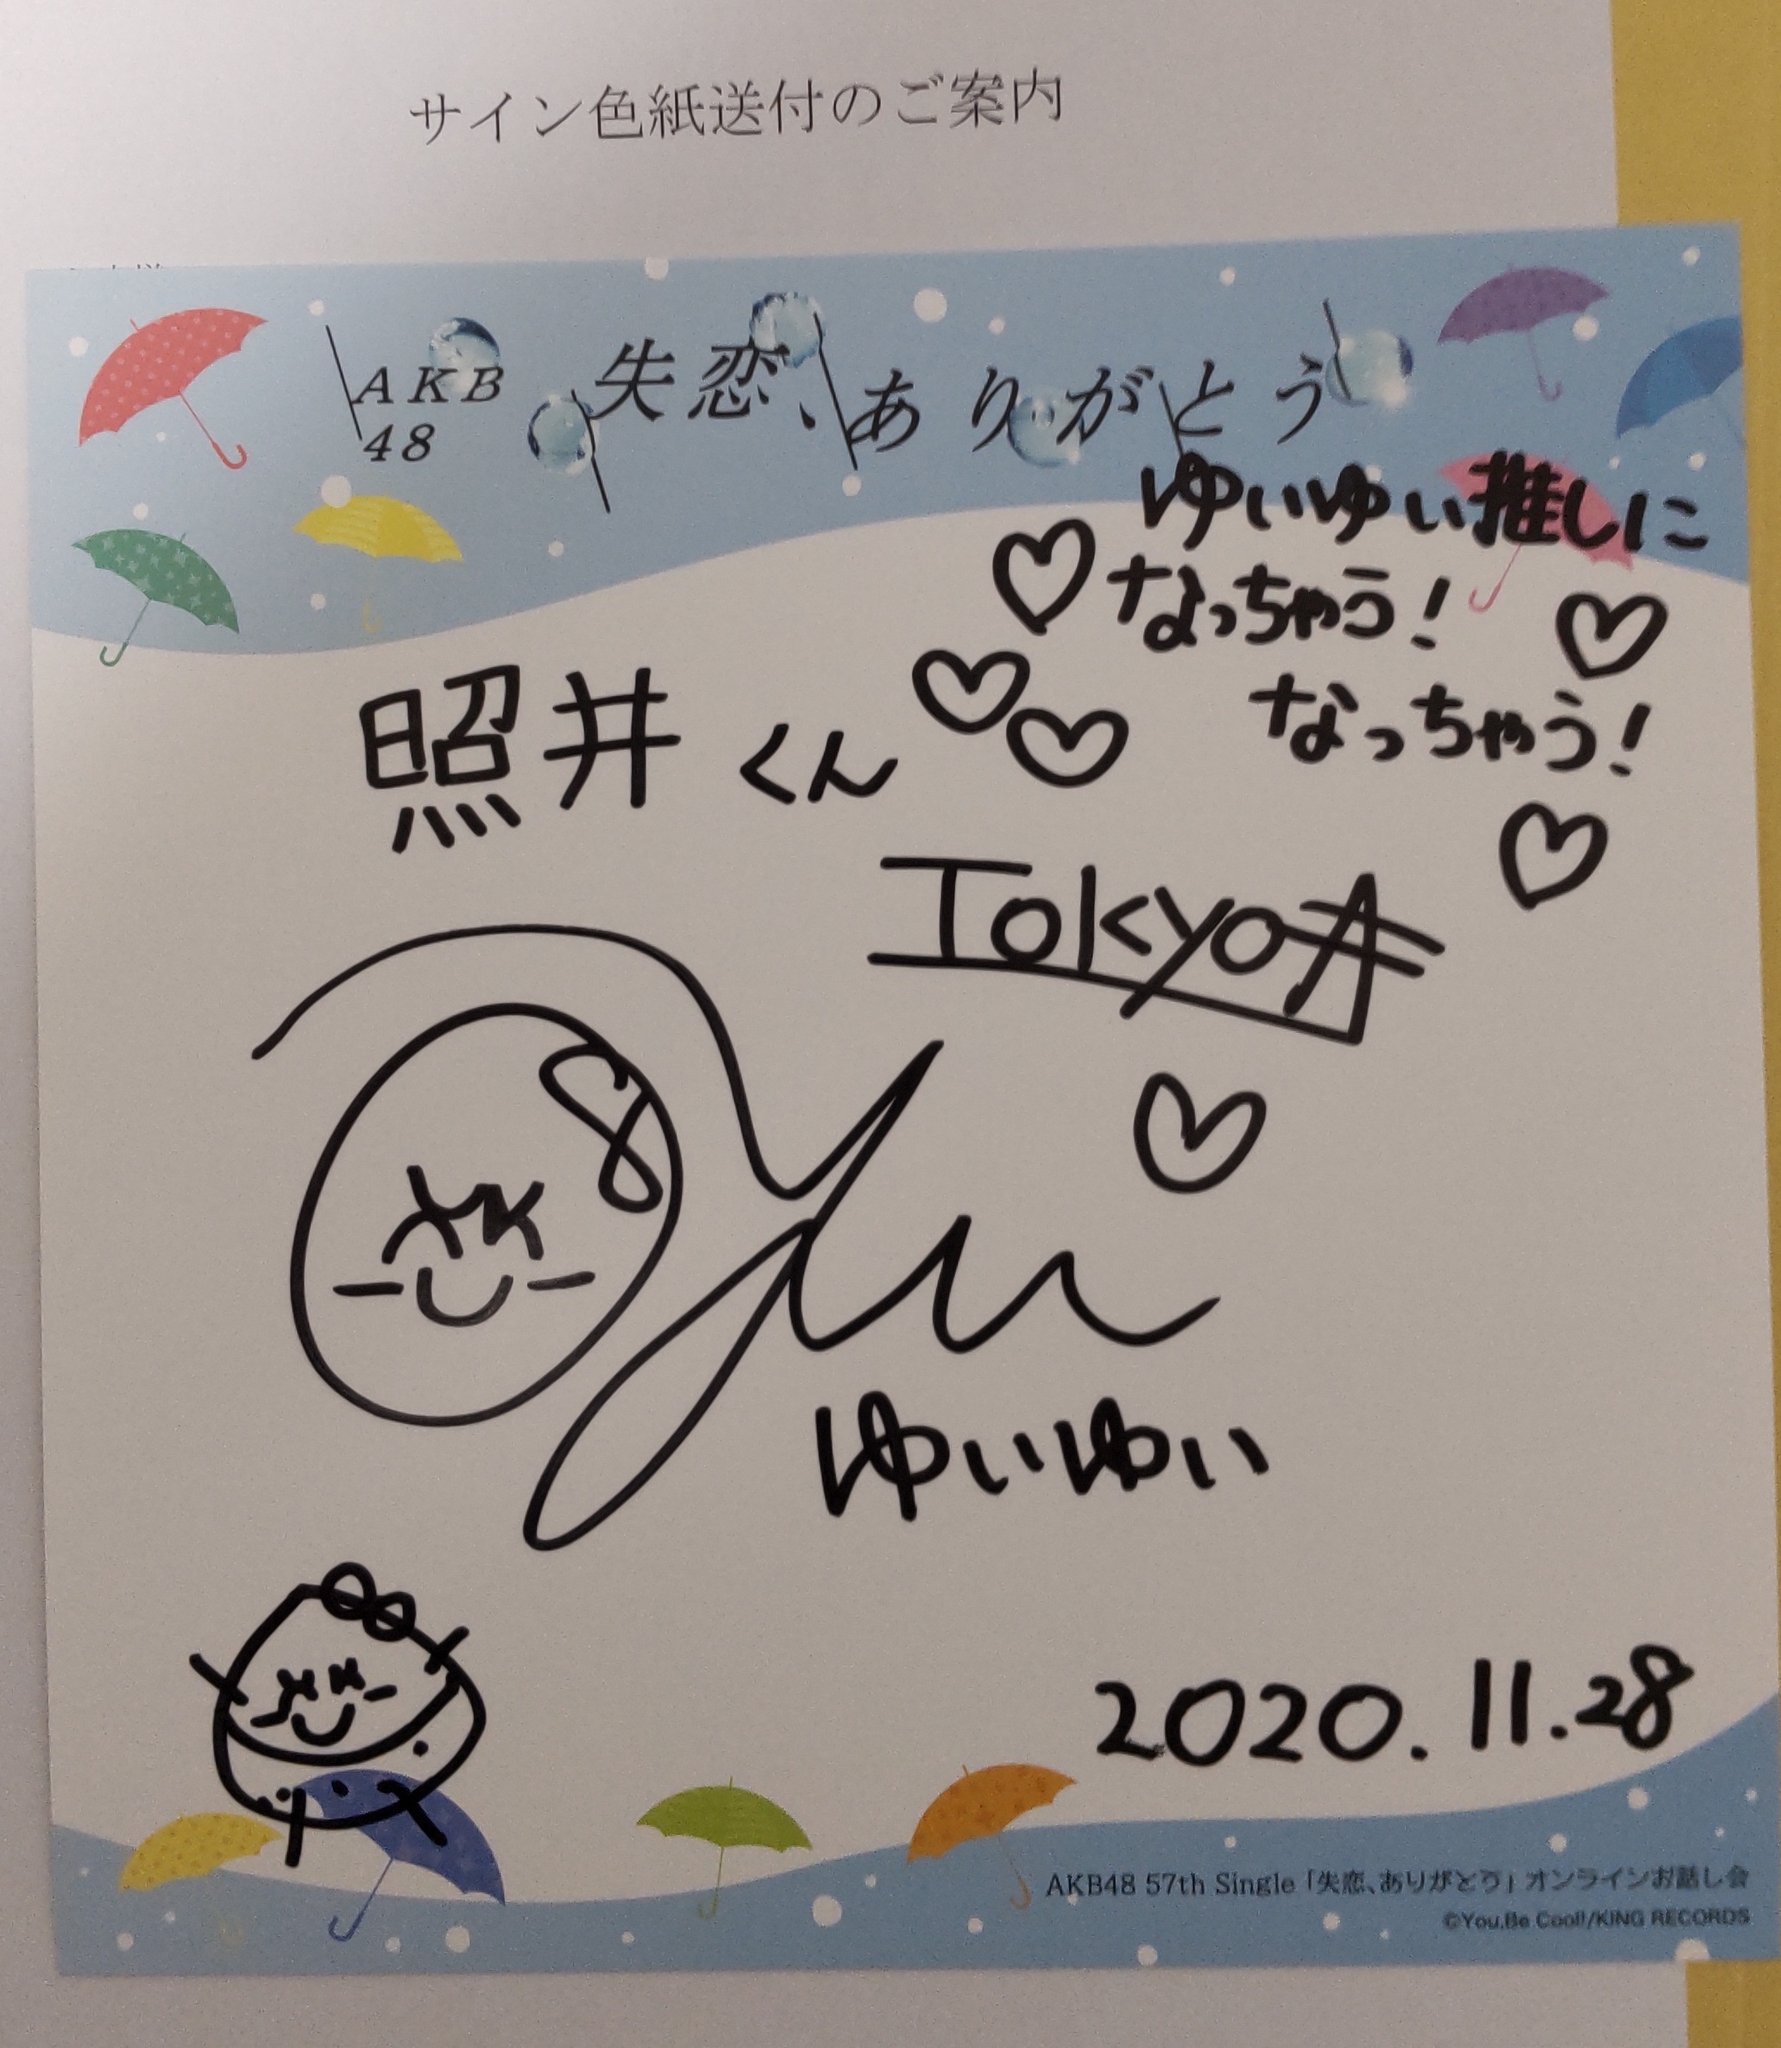 サイン色紙送付のご案内
AKB
48
失恋、ありがとう
ゆいゆい推しに
なっちゃう!
なっちゃう!
照井くん
Tokyo
ゆいゆい
2020.11.28
AKB48 57th Single「失恋、ありがとう」オンラインお話し会
©You,Be Cool!/KING RECORDS